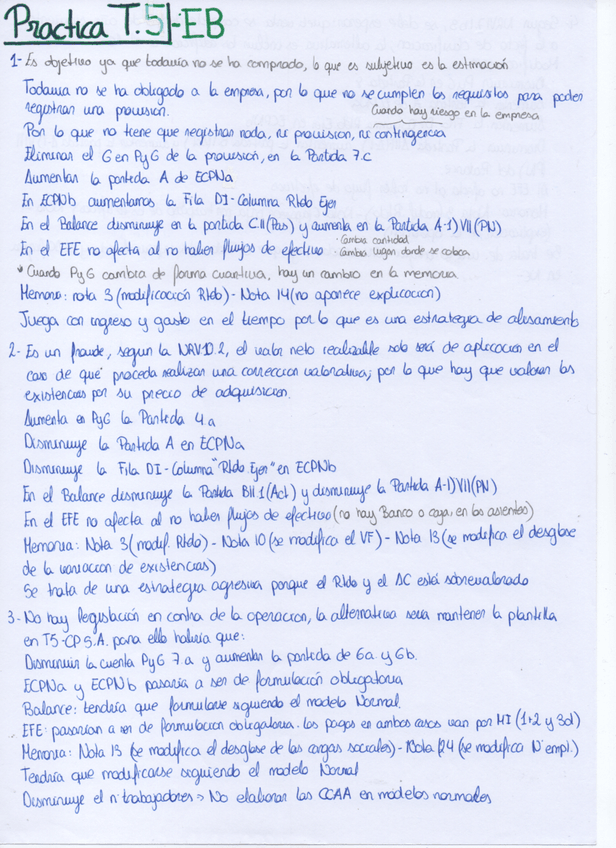 Practica T.5-EB
1- Es objetivo ya que todavía no se ha comprado, lo que es subjetivo es la estimación
Todavia no se ha obligado a la empresa, por lo que no se cumplen los requisitos para poder
registrar una provision.
Cuando hay riesgo en la empresa
Por lo que no tiene que registrar nada, ni provision, ni contingencia
Eliminar el G en PyG de la provision, en la Partida 7.c
Aumentar la partida A de ECPNa
En ECPNb aumentamos la Fila DI-Columna Rtdo Ejer
En el Balance disminuye en la partida C.II (Pas) y aumenta en la Partida A-1) VII (PN)
En el EFE no afecta al no haber flujos de efectivo
· Cambia cantidad
· Cambia lugar donde se coloca
* Cuando PyG cambia de forma cuantiva, hay un cambio en la memoria
Memoria: nota 3 (modificación Rtdo) - Nota 14 (no aparece explicacion)
Juega con ingreso y gasto en el tiempo por lo que es una estrategia de alisamiento
2- Es un fraude, segun la NRV10.2, el valor neto realizable solo será de aplicacion en el
caso de que proceda realizar una correccion valorativa; por lo que hay que valorar las
existencias por su precio de adquisicion.
Aumenta en PyG la Partida 4a
Disminuye la Partida A en ECPNa
Disminuye la Fila DI-Columna "Rtdo Ejer" en ECPNb
En el Balance disminuye la Partida BII 1 (Act) y disminuye la Partida A-1) VII (PN)
En el EFE no afecta al no haber flujos de efectivo (no hay Banco o caja, en los asientos)
Memoria: Nota 3 (modif. Rtdo) - Nota 10 (se modifica el VF) - Nota 13 (se modifica el desglose
de la variacion de existencias)
Se trata de una estrategia agresiva porque el Rtdo y el AC está sobrevalorado
3- No hay legislación en contra de la operacion, la alternativa seria mantener la plantilla
en T5-CP S.A. para ello habria que:
Disminuir la cuenta PyG 7.a y aumentar la partida de 6a. y 6b.
ECPNa y ECPNb pasaria a ser de formulación obligatoria
Balance: tendría que formularse siguiendo el modelo Normal.
EFE: pasarian a ser de formulacion obligatoria. Los pagos en ambos casos van por MI (1+2 y 3d)
Memoria: Nota 13 (se modifica el desglose de las cargas sociales) - Nota 24 (se modifica Nº empl.)
Tendria que modificarse siguiendo el modelo Normal
Disminuye el nº trabajadores → No elaborar las CCAA en modelos normales